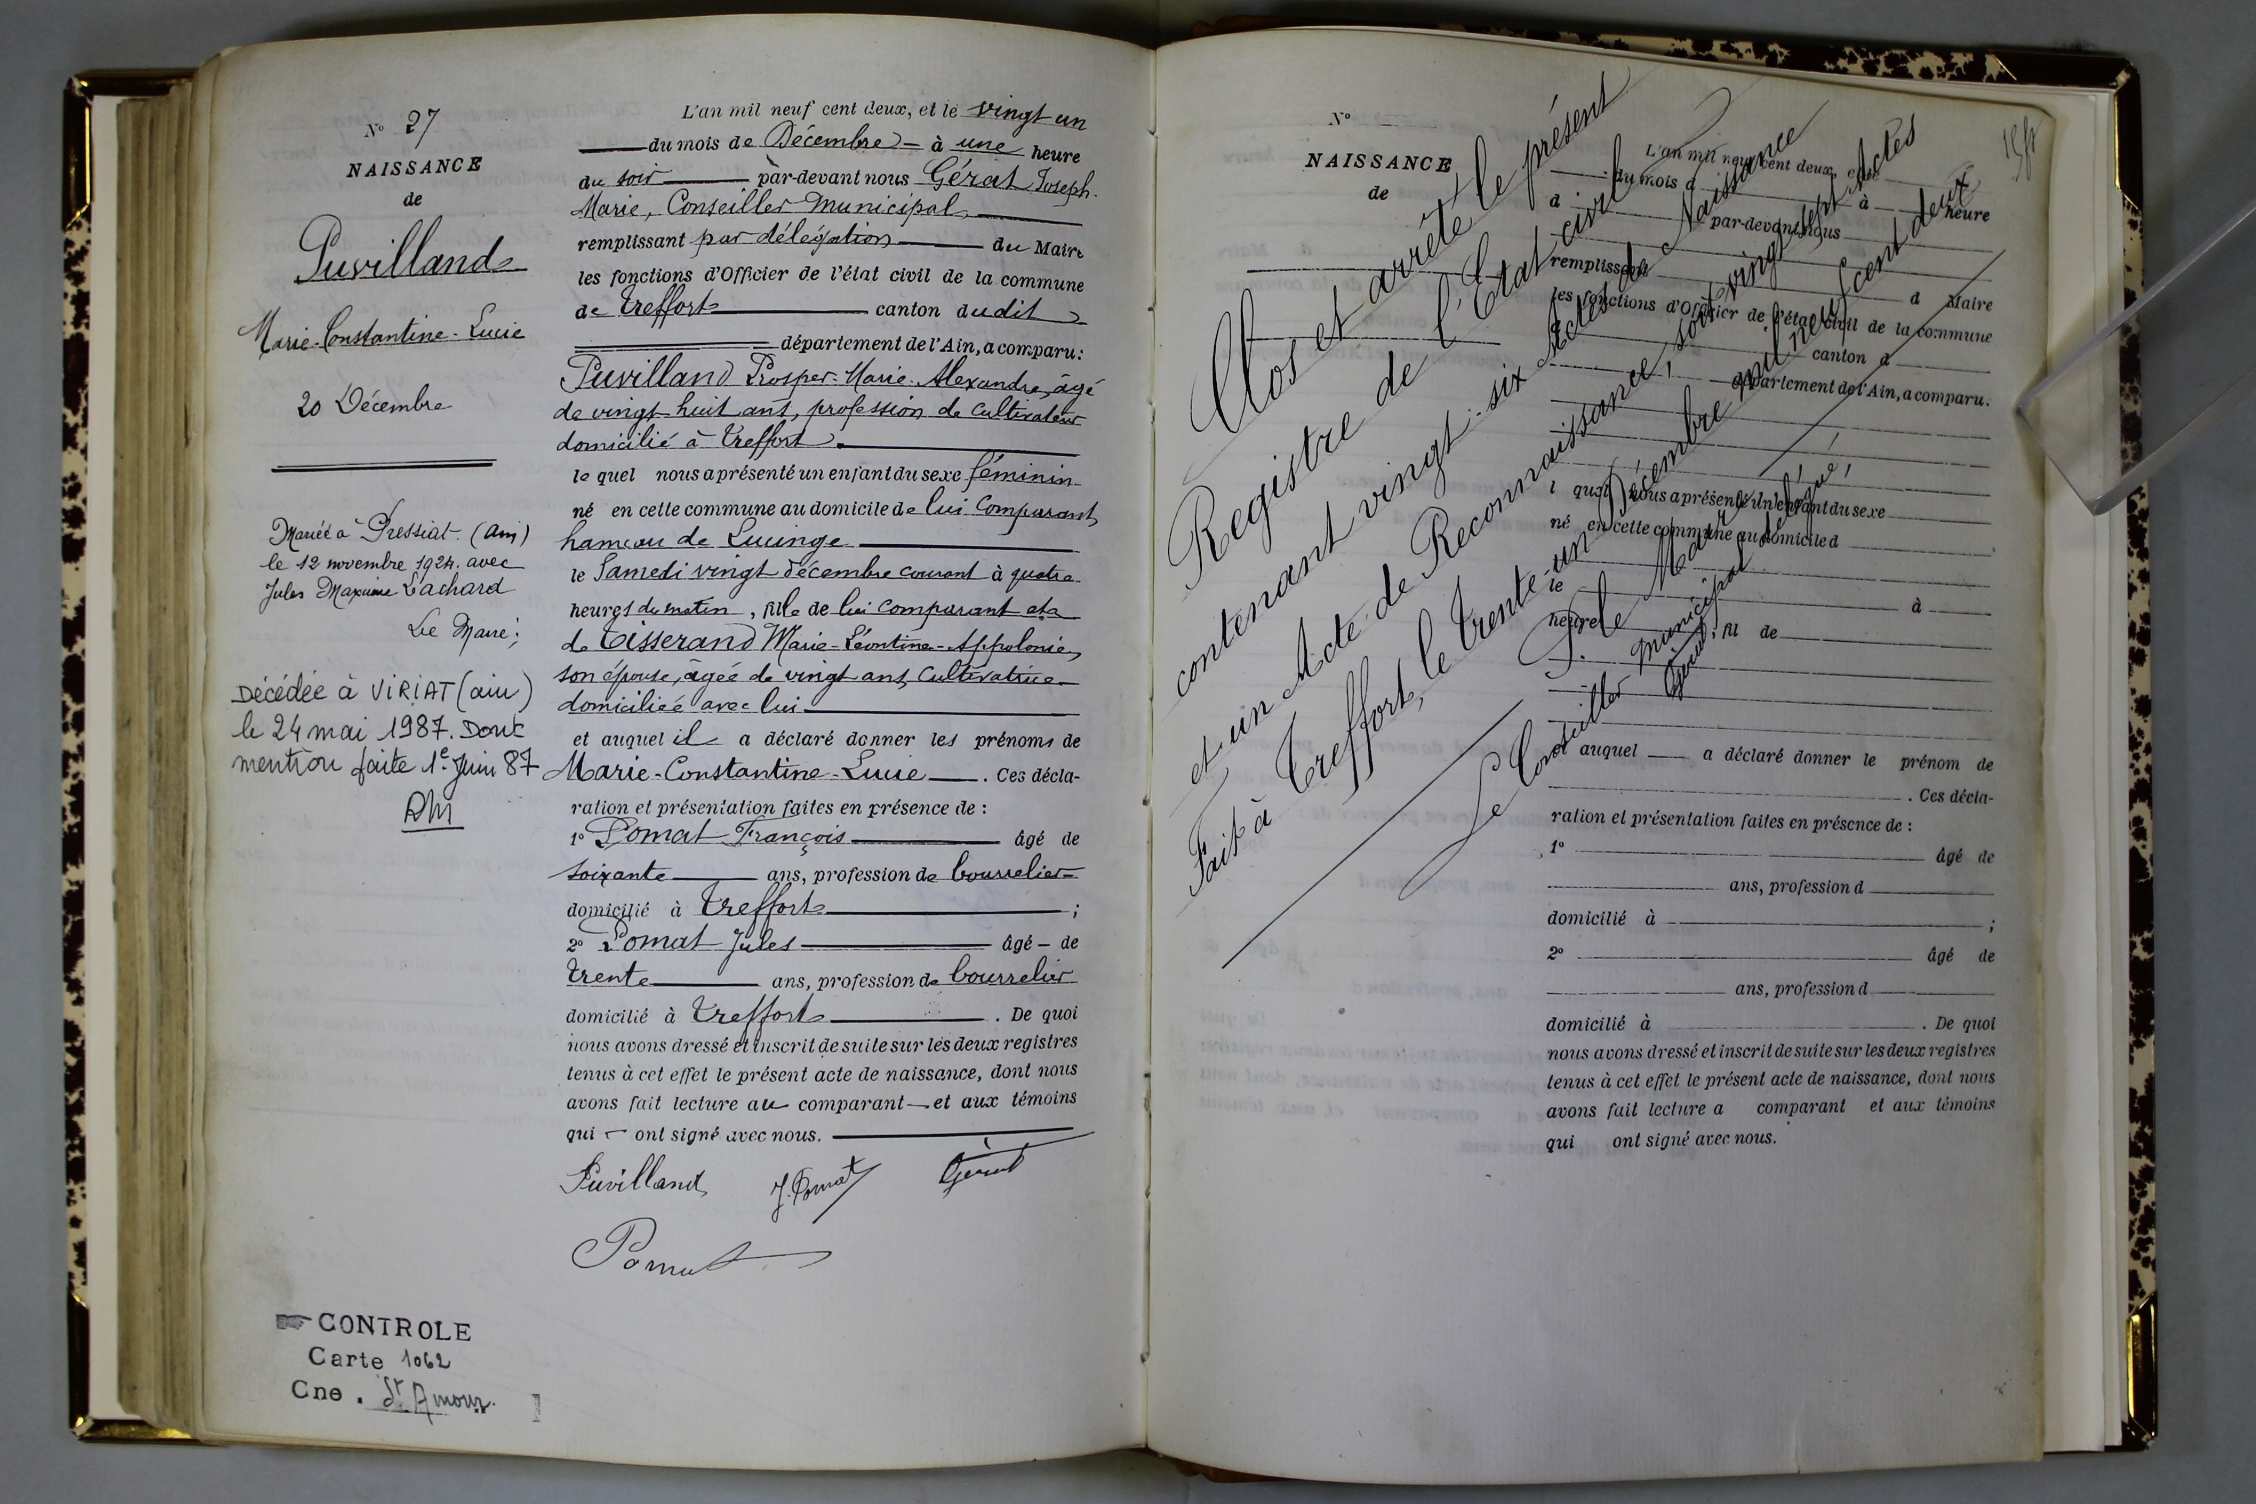 N° 27
NAISSANCE
de
Puvilland
Marie-Constantine-Lucie
20 Décembre
Mariée à Pressiat (Ain)
le 12 novembre 1924 avec
Jules Maxime Lachard
Le Maire;
Décédée à VIRIAT (ain)
le 24 mai 1987. Dont
mention faite 1e Juin 87
CONTROLE
Carte 1062
Cne . St Amour.
L'an mil neuf cent deux, et le vingt un
du mois de Décembre - à une heure
du soir par-devant nous Gérat Joseph-
Marie, Conseiller Municipal,
remplissant par délégation du Maire
les fonctions d'Officier de l'état civil de la commune
de Treffort canton dudit
département de l'Ain, a comparu:
Puvilland Prosper-Marie-Alexandre, âgé
de vingt huit ans, profession de cultivateur
domicilié à Treffort.
lequel nous a présenté un enfant du sexe féminin
né en cette commune au domicile de lui comparant,
hameau de Lucinge
le Samedi vingt décembre courant à quatre
heures du matin, fille de lui comparant et
de Tisserand Marie-Léontine-Appolonie,
son épouse, âgée de vingt ans, Cultivatrice
domiciliée avec lui
et auquel il a déclaré donner les prénoms de
Marie-Constantine-Lucie. Ces décla-
ration et présentation faites en présence de :
1° Pomat François âgé de
soixante ans, profession de bourrelier
domicilié à Treffort ;
2° Pomat Jules âgé - de
trente ans, profession de bourrelier
domicilié à Treffort . De quoi
nous avons dressé et inscrit de suite sur les deux registres
tenus à cet effet le présent acte de naissance, dont nous
avons fait lecture au comparant - et aux témoins
qui - ont signé avec nous.
Puvilland J. Pomat Gérat
Pomat
N°
NAISSANCE
de
L'an mil neuf cent deux, et le
du mois d à heure
d par-devant nous
remplissant d Maire
les fonctions d'Officier de l'état civil de la commune
canton d
département de l'Ain, a comparu.
l quel nous a présenté un enfant du sexe
né en cette commune au domicile d
le à
heure fil de
et auquel a déclaré donner le prénom de
. Ces décla-
ration et présentation faites en présence de :
1° âgé de
ans, profession d
domicilié à ;
2° âgé de
ans, profession d
domicilié à . De quoi
nous avons dressé et inscrit de suite sur les deux registres
tenus à cet effet le présent acte de naissance, dont nous
avons fait lecture a comparant et aux témoins
qui ont signé avec nous.
Clos et arrêté le présent
Registre de l'Etat civil
contenant vingt-six Actes de Naissance
et un Acte de Reconnaissance, soit vingt sept Actes
Fait à Treffort, le trente-un Décembre mil neuf cent deux
P. le Maire
Le Conseiller Municipal délégué,
Gérat